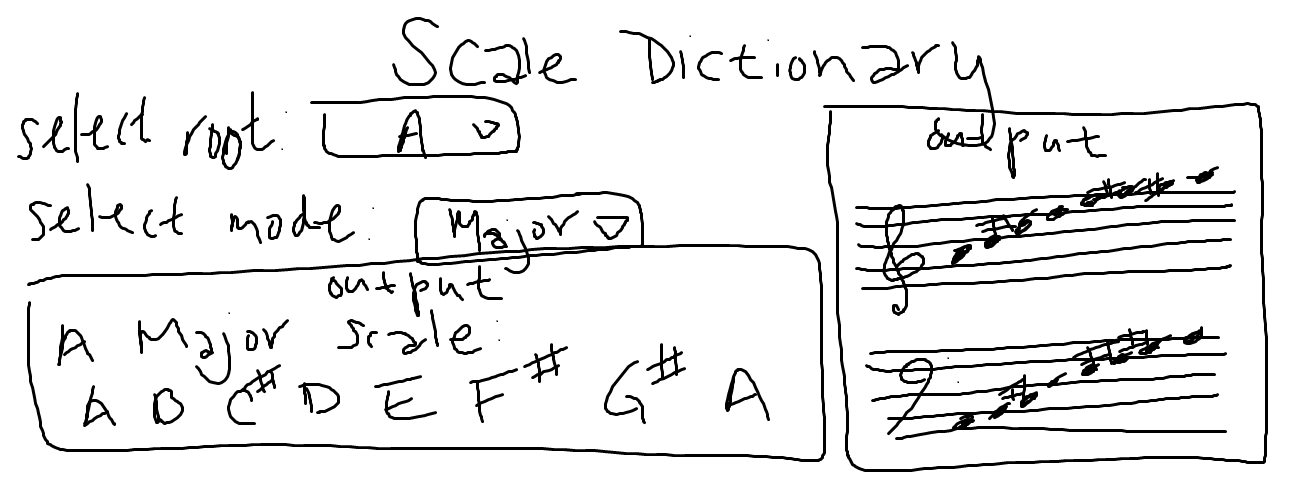 Scale Dictionary
select root: A
select mode: Major
output
A Major scale:
A B C# D E F# G# A
output